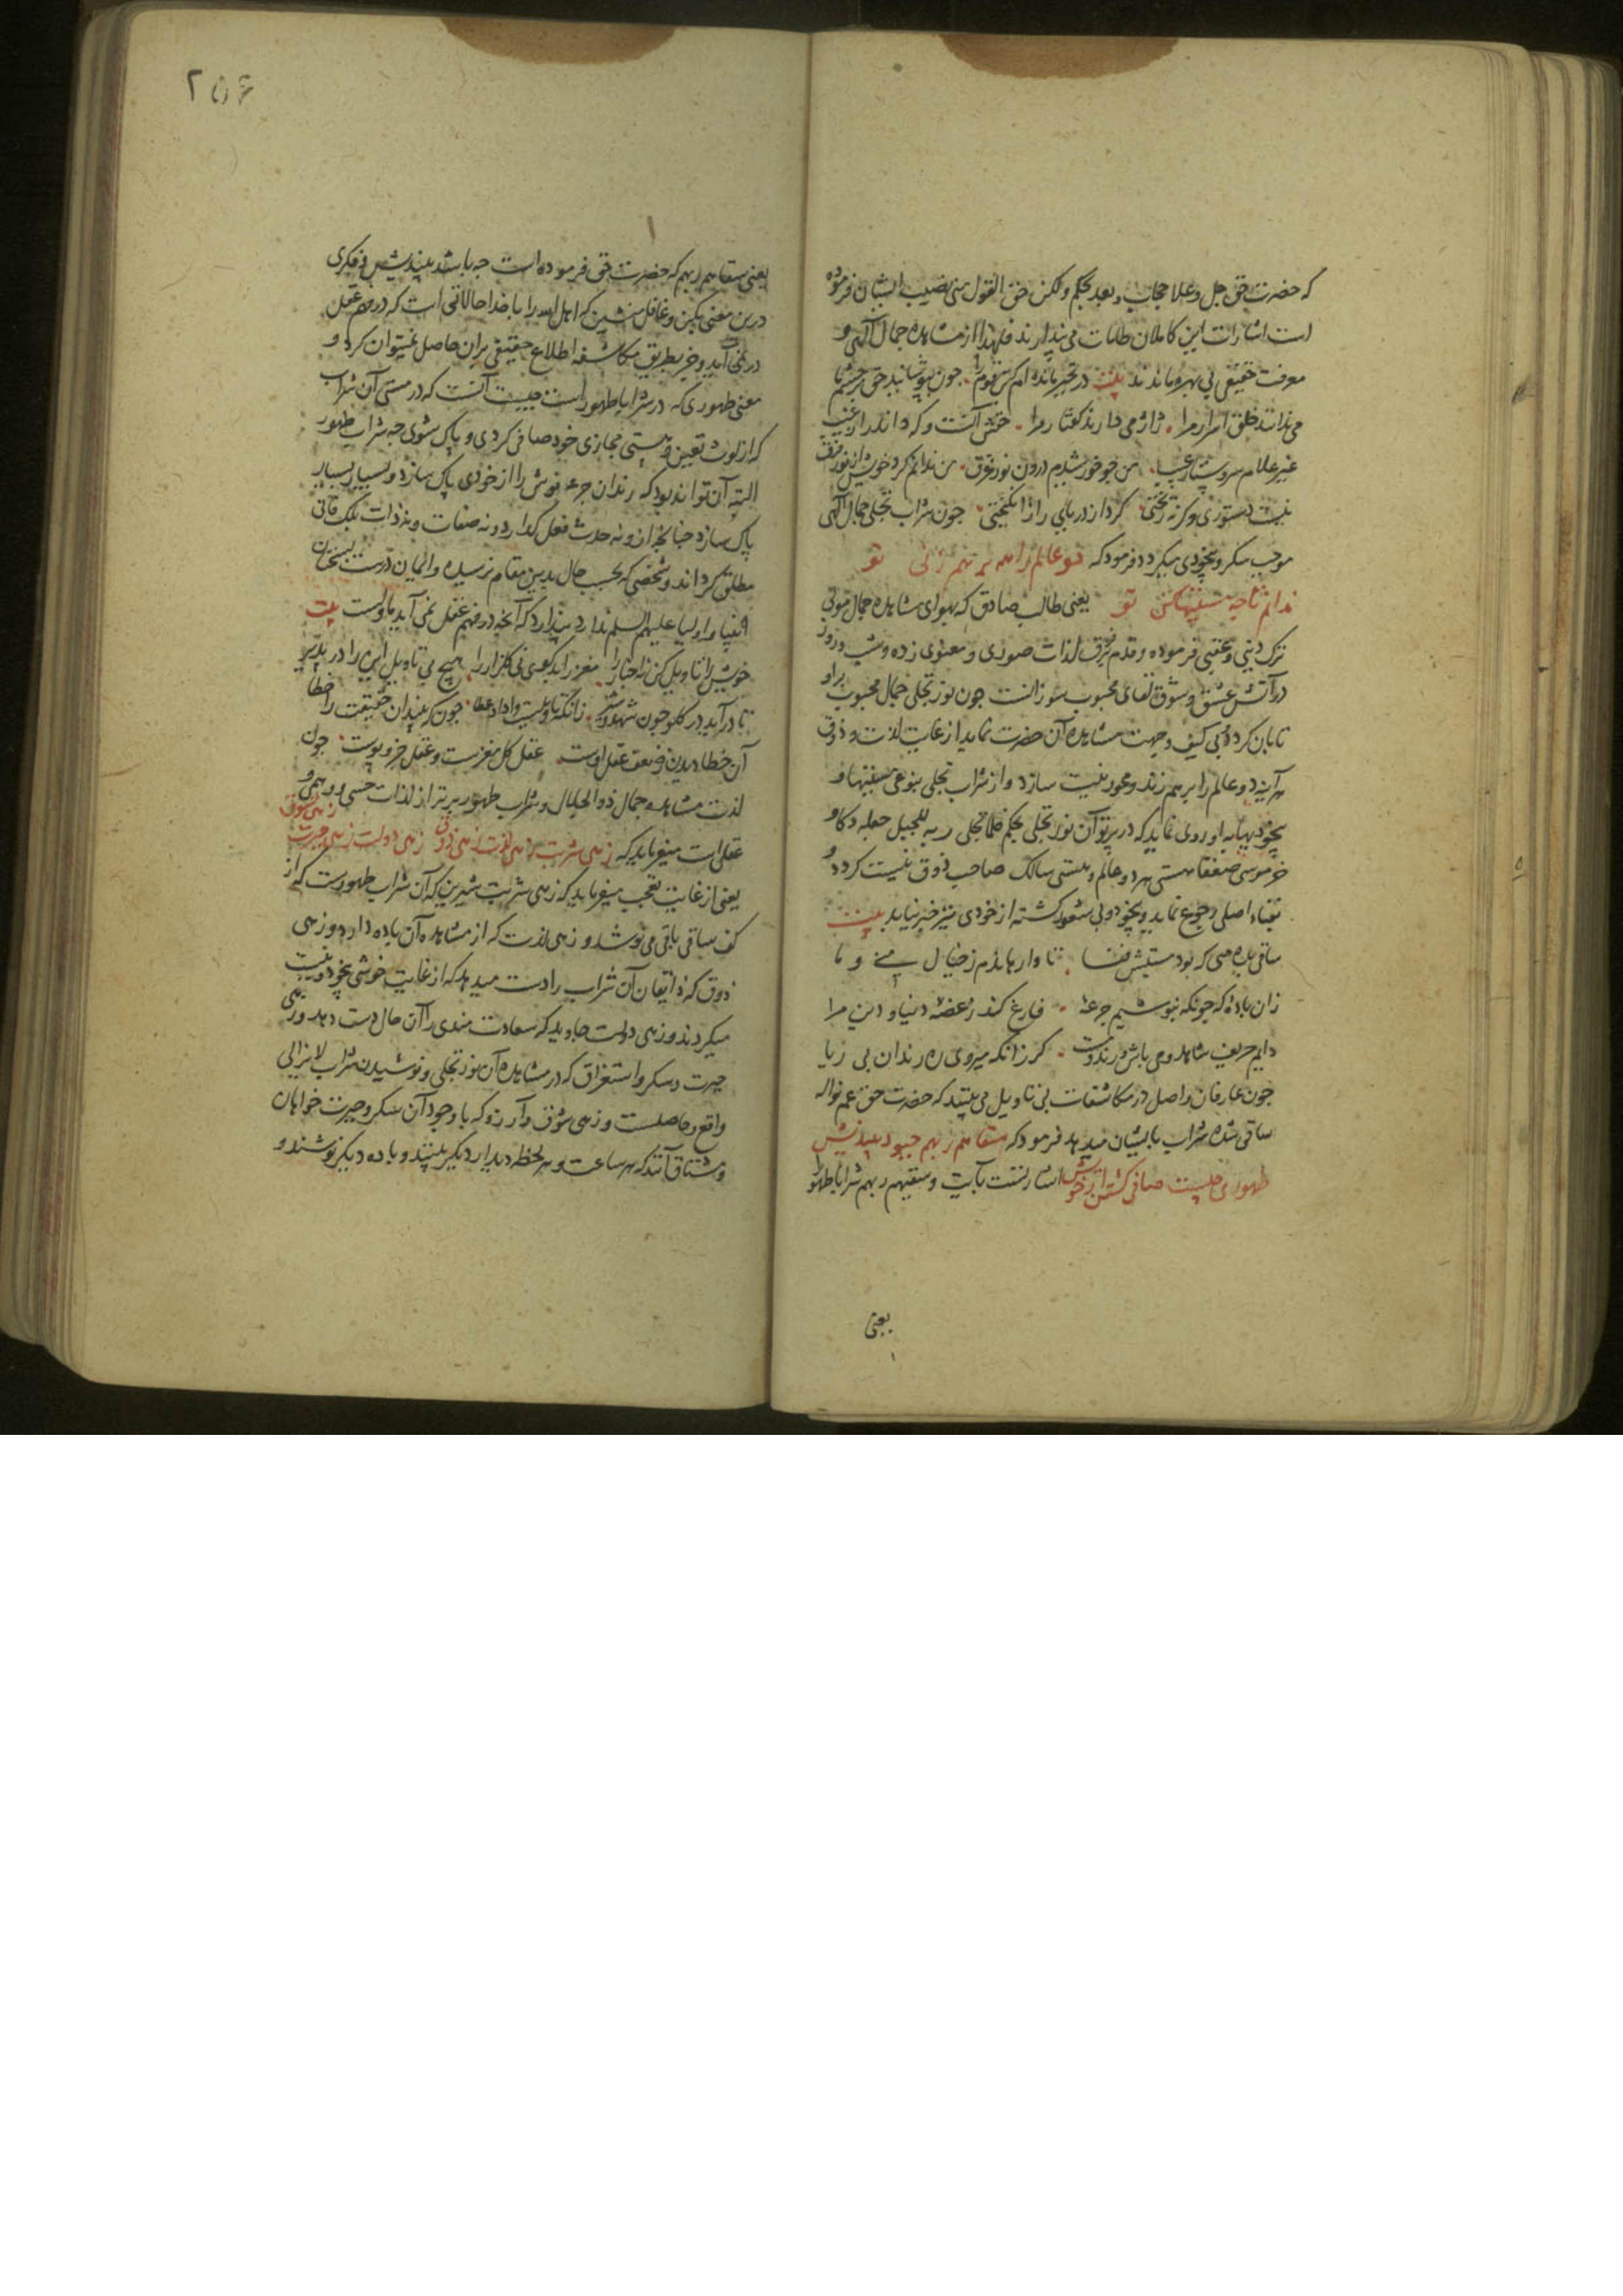 که حضرت حق جل وعلا حجاب و بعد بحکم ولکن حق القول منی نصیب ایشان فرموده
است اشارات این کاملان طامات می پندارند فلهذا از مشاهده جمال الهی و
معرفت حقیقی بی بهره ماندند بیت در تحیر مانده ام کین قوم را چون بپوشانید حق چشمها
می ندانند خلق اسرار مرا ژاژ می دارند گفتار مرا
غیر علام
من چو خورشیدم درون نور غرق من ندانم کرد خویش از نور فرق
نیست دستوری وگرنه ریختی گرد از دریای راز انگیختی چون شراب تجلی جمال الهی
موجب سکر و بیخودی میگردد فرمود که دو عالم را همه بر هم زنی تو
ندانم تا چه مستیها کنی تو یعنی طالب صادق که بهوای مشاهده جمال مولی
ترک دنیی و عقبی فرموده و قدم بر فرق لذات صوری و معنوی زده و شب و روز
در آتش عشق و شوق لقای محبوب سوزانست چون نور تجلی جمال محبوب برو
تابان گردد و بی کیف و جهت مشاهده آن حضرت نماید از غایت لذت و ذوق
هر آینه دو عالم را بر هم زند و محو و نیست سازد و از شراب تجلی بنوعی مستیها و
بیخودیها باو روی نماید که در پرتو آن نور تجلی بحکم فلما تجلی ربه للجبل جعله دکا و
خر موسی صعقا هستی هر دو عالم و هستی سالک صاحب ذوق نیست گردد و
بفناء اصلی رجوع نماید و بیخود و بی شعور گشته از خودی نیز خبر نیابد بیت
ساقی بده می که بود مستیش فنا تا وارهاندم ز خیال منی و ما
زان باده که چونکه بنوشیم جرعه فارغ کند ز غصه دنیا و دین مرا
دایم حریف شاهد و می باش و رند و مست گر زانکه میروی ره رندان بی ریا
چون عارفان واصل در مکاشفات بی تاویل می بینند که حضرت حق عم نواله
ساقی شده شراب بایشان میدهد فرمود که سقاهم ربهم چبود بیندیش
طهورا چیست صافی گشتن از خویش اشارتست بآیت وسقیهم ربهم شرابا طهورا
یعنی
۲۵۶
یعنی سقاهم ربهم که حضرت حق فرموده است چه باشد بیندیش و فکری
درین معنی بکن و غافل منشین که اهل الله را با خدا حالاتی است که در فهم عقل
در نمی آید و جز بطریق مکاشفه اطلاع حقیقی بران حاصل نمیتوان کرد و
معنی طهوری که در شرابا طهورا است چیست آنست که در مستی آن شراب
که از لوث تعین و هستی مجازی خود صافی گردی و پاک شوی چه شراب طهور
البته آن تواند بود که رندان جرعه نوش را از خودی پاک سازد و بسیار بسیار
پاک سازد چنانچه ازو نه حدث فعل گذارد و نه صفات و نه ذات بلک فانی
مطلق گرداند و شخصی که بحسب حال بدین مقام نرسیده و ایمان درست بسخنان
انبیا و اولیا علیهم السلم ندارد پندارد که آنچه در فهم عقل نمی آید ماولست بیت
خویش را تاویل کن نه اخبار را مغز را بد گوی نی گلزار را هیچ بی تاویل این را در پذیر
تا درآید در گلو چون شهد و شیر زانکه تاویلست واداد عطا چونکه بیند آن حقیقت را خطا
آن خطا دیدن ز ضعف عقل اوست عقل کل مغزست و عقل جزو پوست چون
لذت مشاهده جمال ذوالجلال و شراب طهور برتر از لذات حسی و وهمی و
عقلی است میفرماید که زهی شربت زهی لذت زهی ذوق زهی دولت زهی حیرت زهی شوق
یعنی از غایت تعجب میفرماید که زهی شربت شیرین که آن شراب طهورست که از
کف ساقی باقی می نوشد و زهی لذت که از مشاهده آن باده دارد و زهی
ذوق که ذایقان آن شراب را دست میدهد که از غایت خوشی بیخود و نیست
میگردند و زهی دولت جاوید که سعادت مندی را آن حال دست دهد و زهی
حیرت و سکر و استغراق که در مشاهده آن نور تجلی و نوشیدن شراب لایزالی
واقع و حاصلست و زهی شوق و آرزو که با وجود آن سکر و حیرت خواهان
و مشتاق آنند که هر ساعت و هر لحظه دیدار دیگر بینند و باده دیگر نوشند و